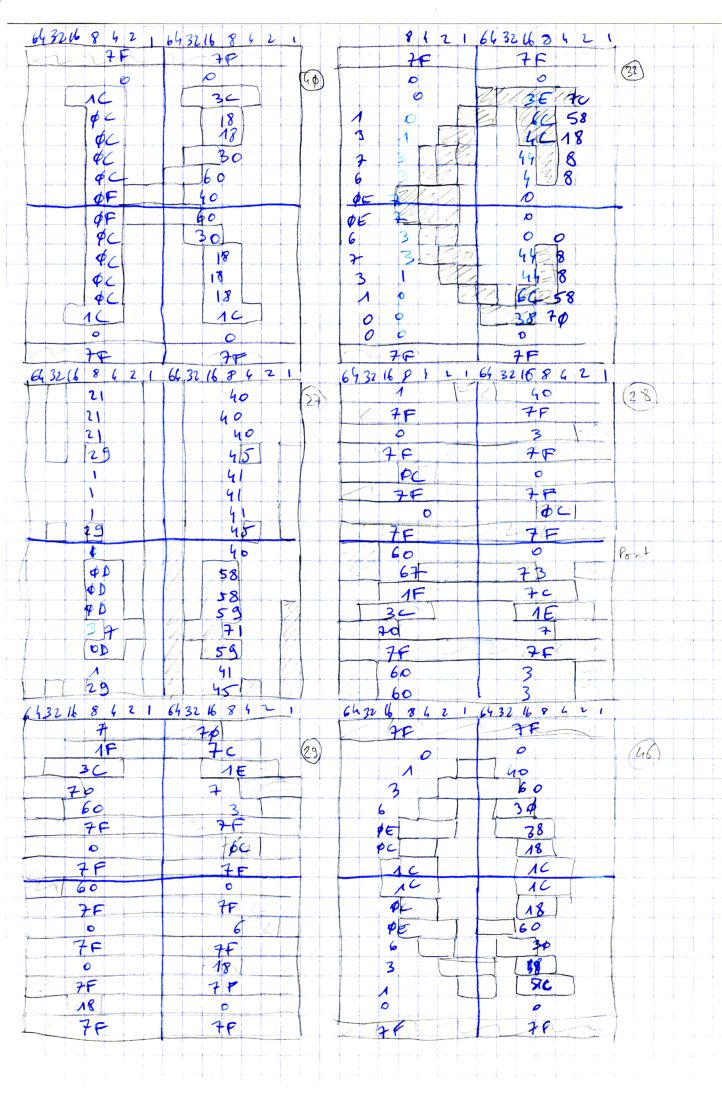 64 32 16 8 4 2 1 64 32 16 8 4 2 1
7F 7F
0 0
40
1C 3C
0C 18
0C 18
0C 30
0C 60
0F 40
0F 60
0C 30
0C 18
0C 18
0C 18
1C 1C
0 0
7F 7F
8 4 2 1 64 32 16 8 4 2 1
7F 7F
0 0
32
0 3E 7C
1 0 6C 58
3 1 4C 18
7 3 44 8
6 4 8
0E 7 0
0E 7 0
6 3 0 0
7 3 44 8
3 1 44 8
1 0 6C 58
0 0 38 70
0 0 0
7F 7F
64 32 16 8 4 2 1 64 32 16 8 4 2 1
21 40
27
21 40
21 40
29 45
1 41
1 41
1 41
29 45
1 40
0D 58
0D 58
0D 59
37 71
0D 59
1 41
29 45
64 32 16 8 4 2 1 64 32 16 8 4 2 1
1 40
28
7F 7F
0 3
7F 7F
0C 0
7F 7F
0 0C
7F 7F
60 0
Pont
67 73
1F 7C
3C 1E
70 7
7F 7F
60 3
60 3
64 32 16 8 4 2 1 64 32 16 8 4 2 1
7 70
1F 7C
29
3C 1E
70 7
60 3
7F 7F
0 0C
7F 7F
60 0
7F 7F
0 6
7F 7F
0 18
7F 7F
18 0
7F 7F
64 32 16 8 4 2 1 64 32 16 8 4 2 1
7F 7F
0 0
46
1 40
3 60
6 30
0E 38
0C 18
1C 1C
1C 1C
0C 18
0E 60
6 30
3
1
0 0
7F 7F